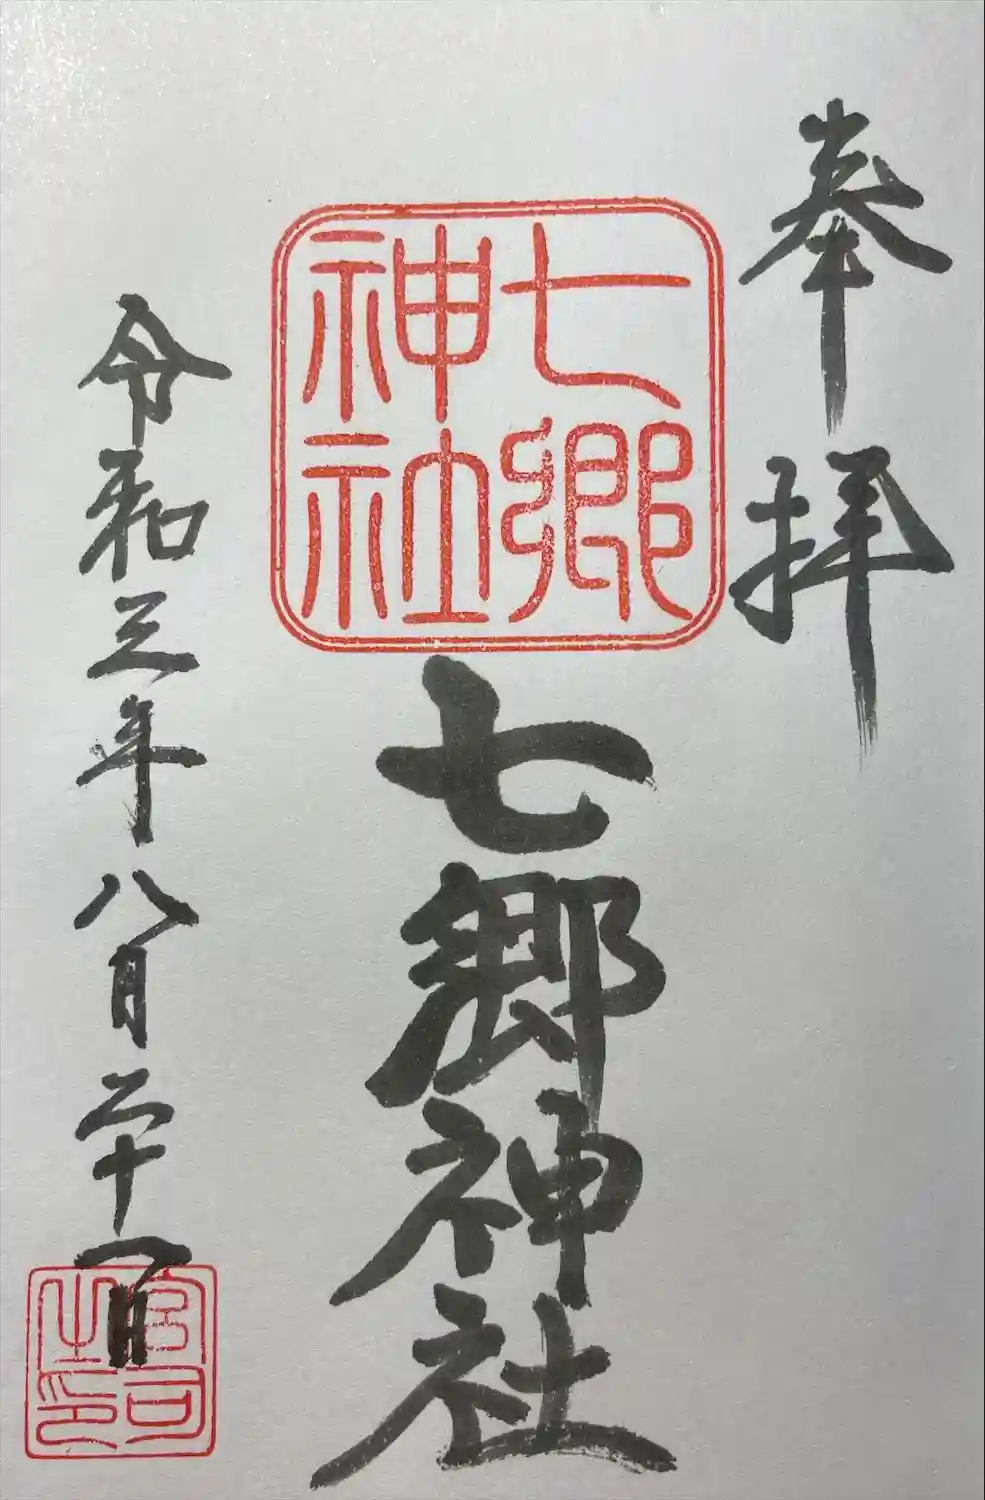 奉拝
七郷
神社
七郷神社
令和三年八月二十一日
宮司
之印